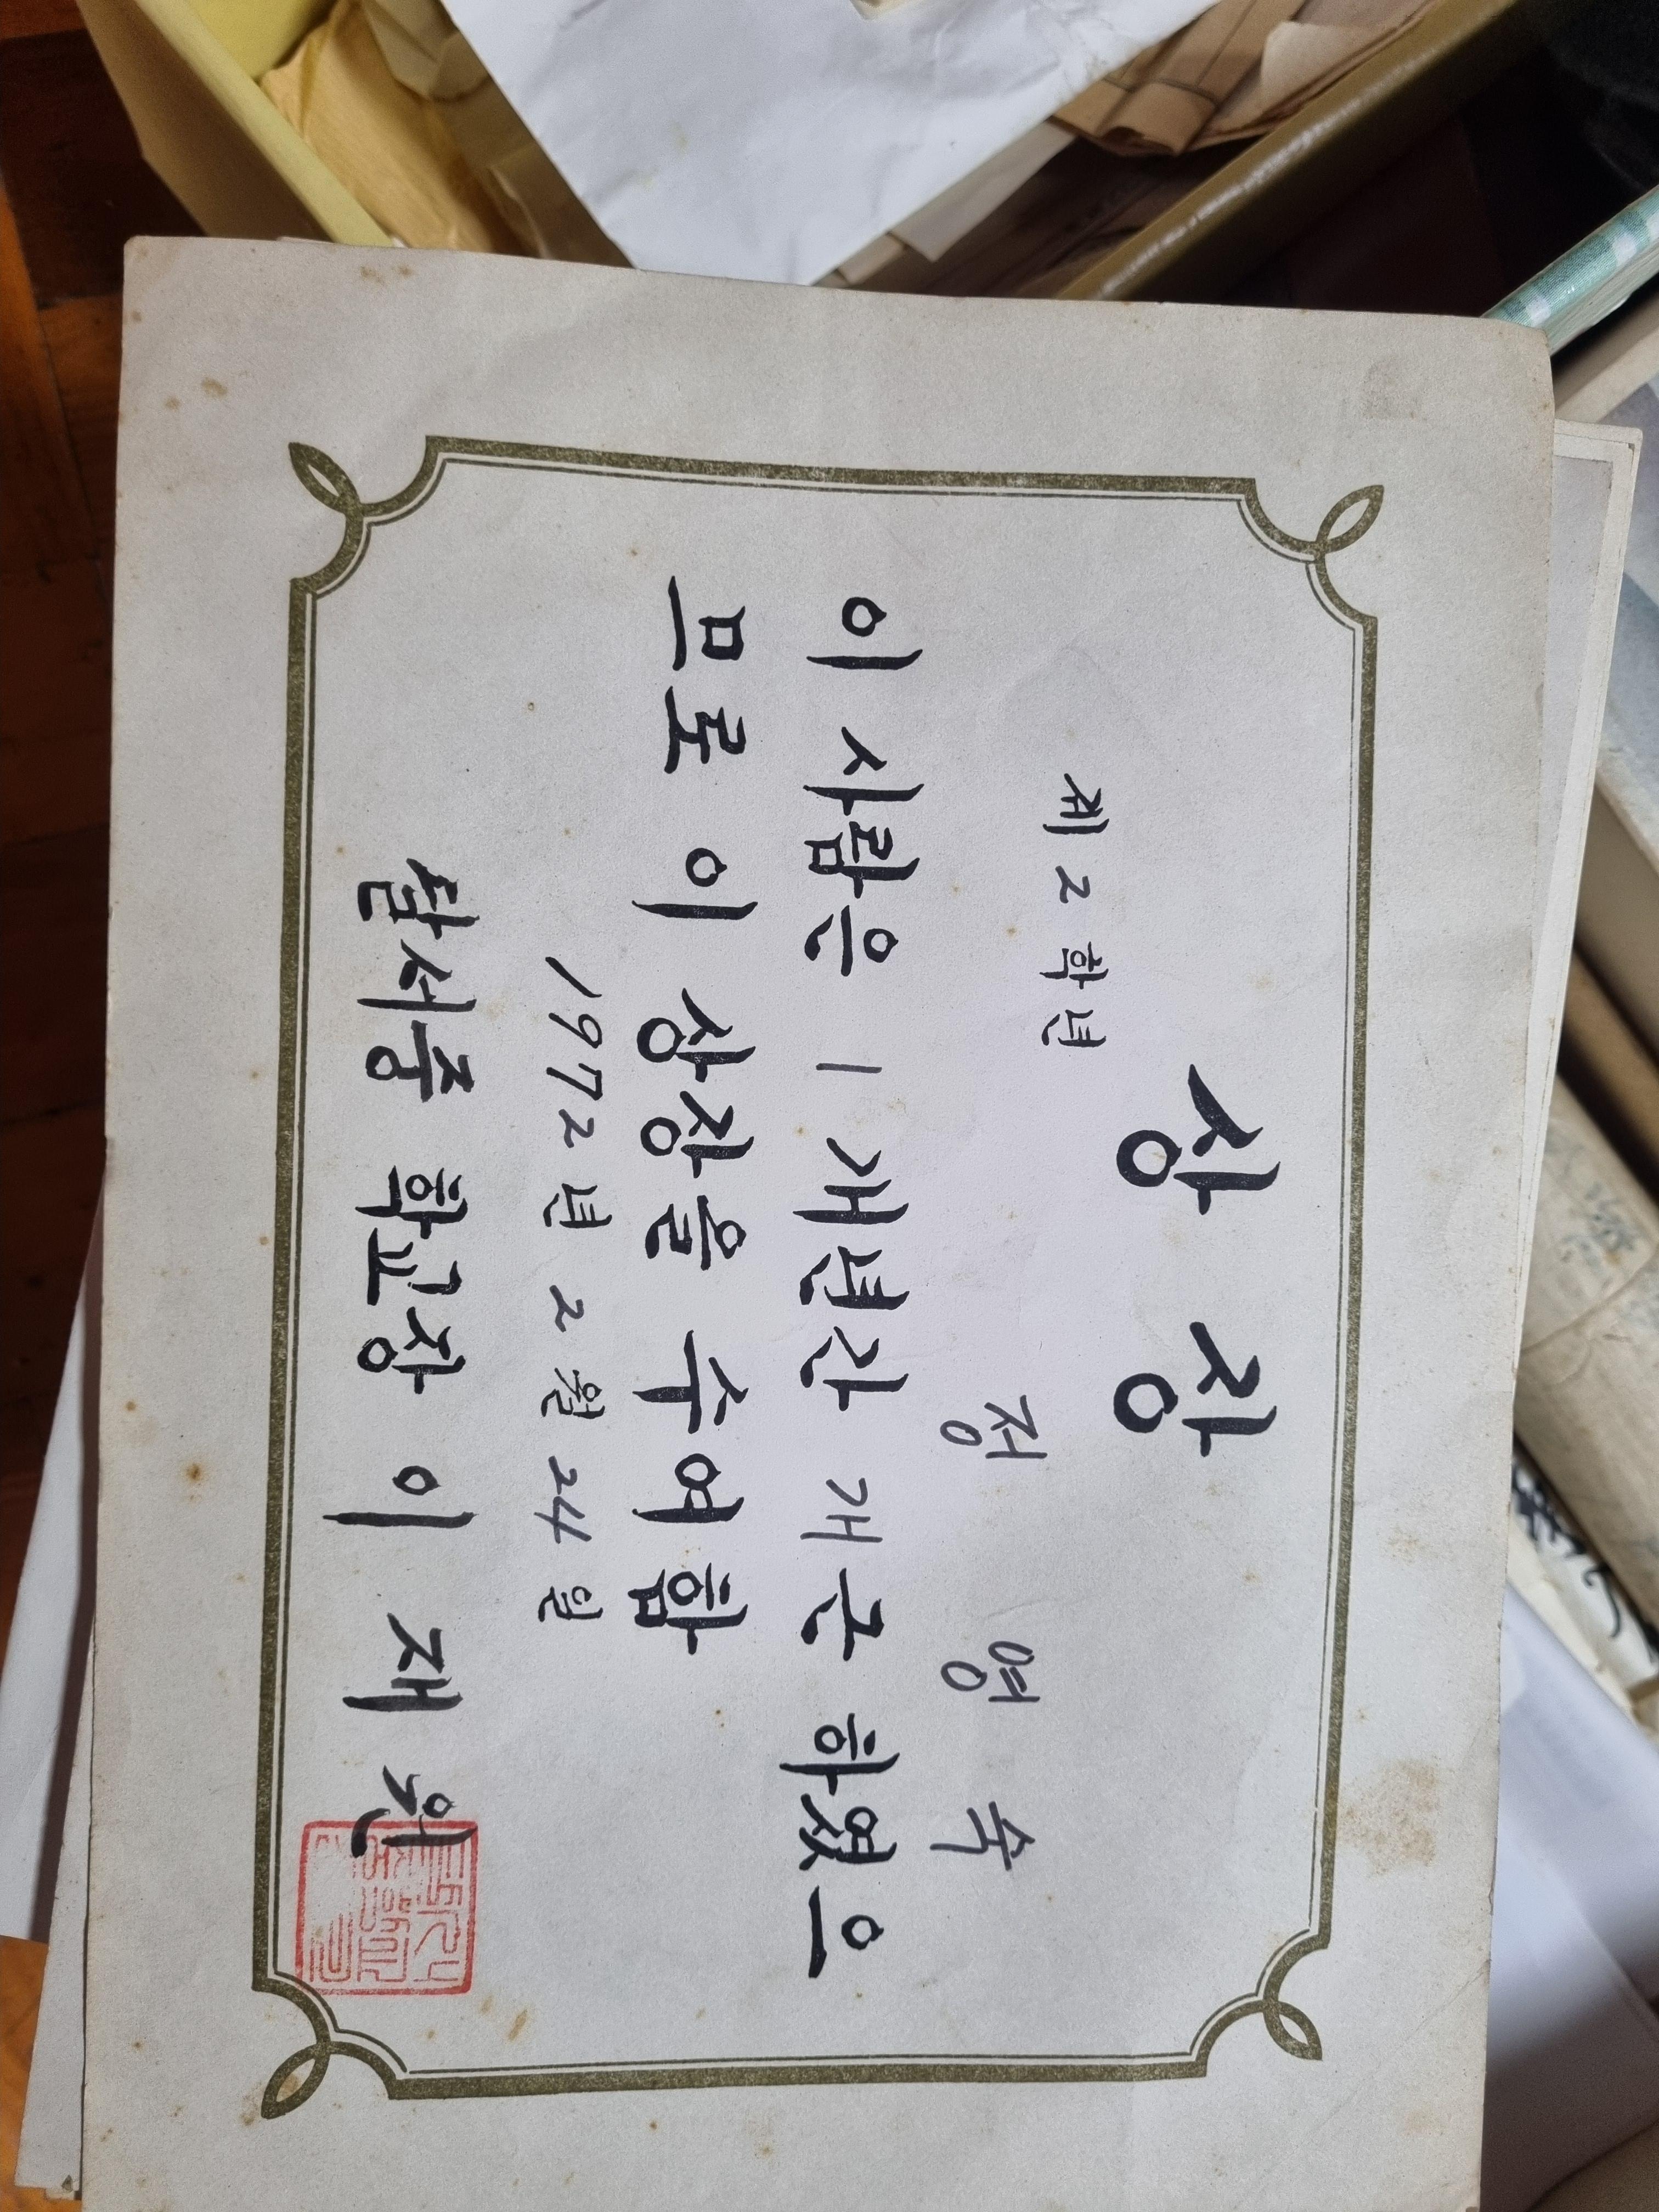 상 장
제 2 학년
정 영 숙
이 사람은 1 개년간 개근 하였으
므로 이 상장을 수여함
1972 년 2 월 24 일
삼서중 학교장 이 재 원